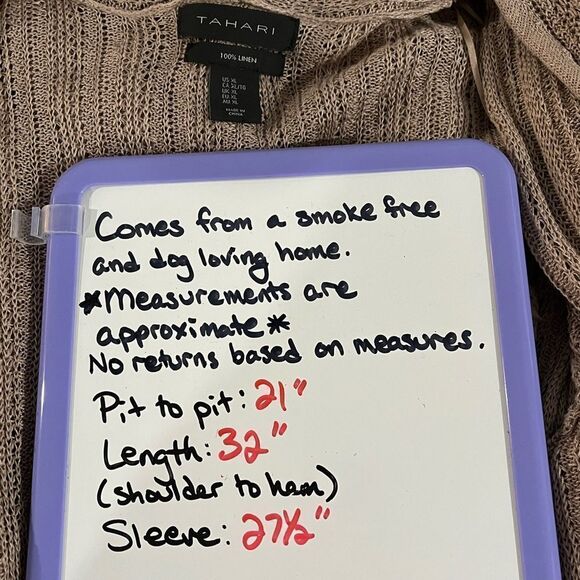 TAHARI
100% LINEN
US XL
CA XL/TG
UK XL
EU XL
AU XL
MADE IN
CHINA
Comes from a smoke free
and dog loving home.
*Measurements are
approximate*
No returns based on measures.
Pit to pit: 21"
Length: 32"
(shoulder to hem)
Sleeve: 27½"